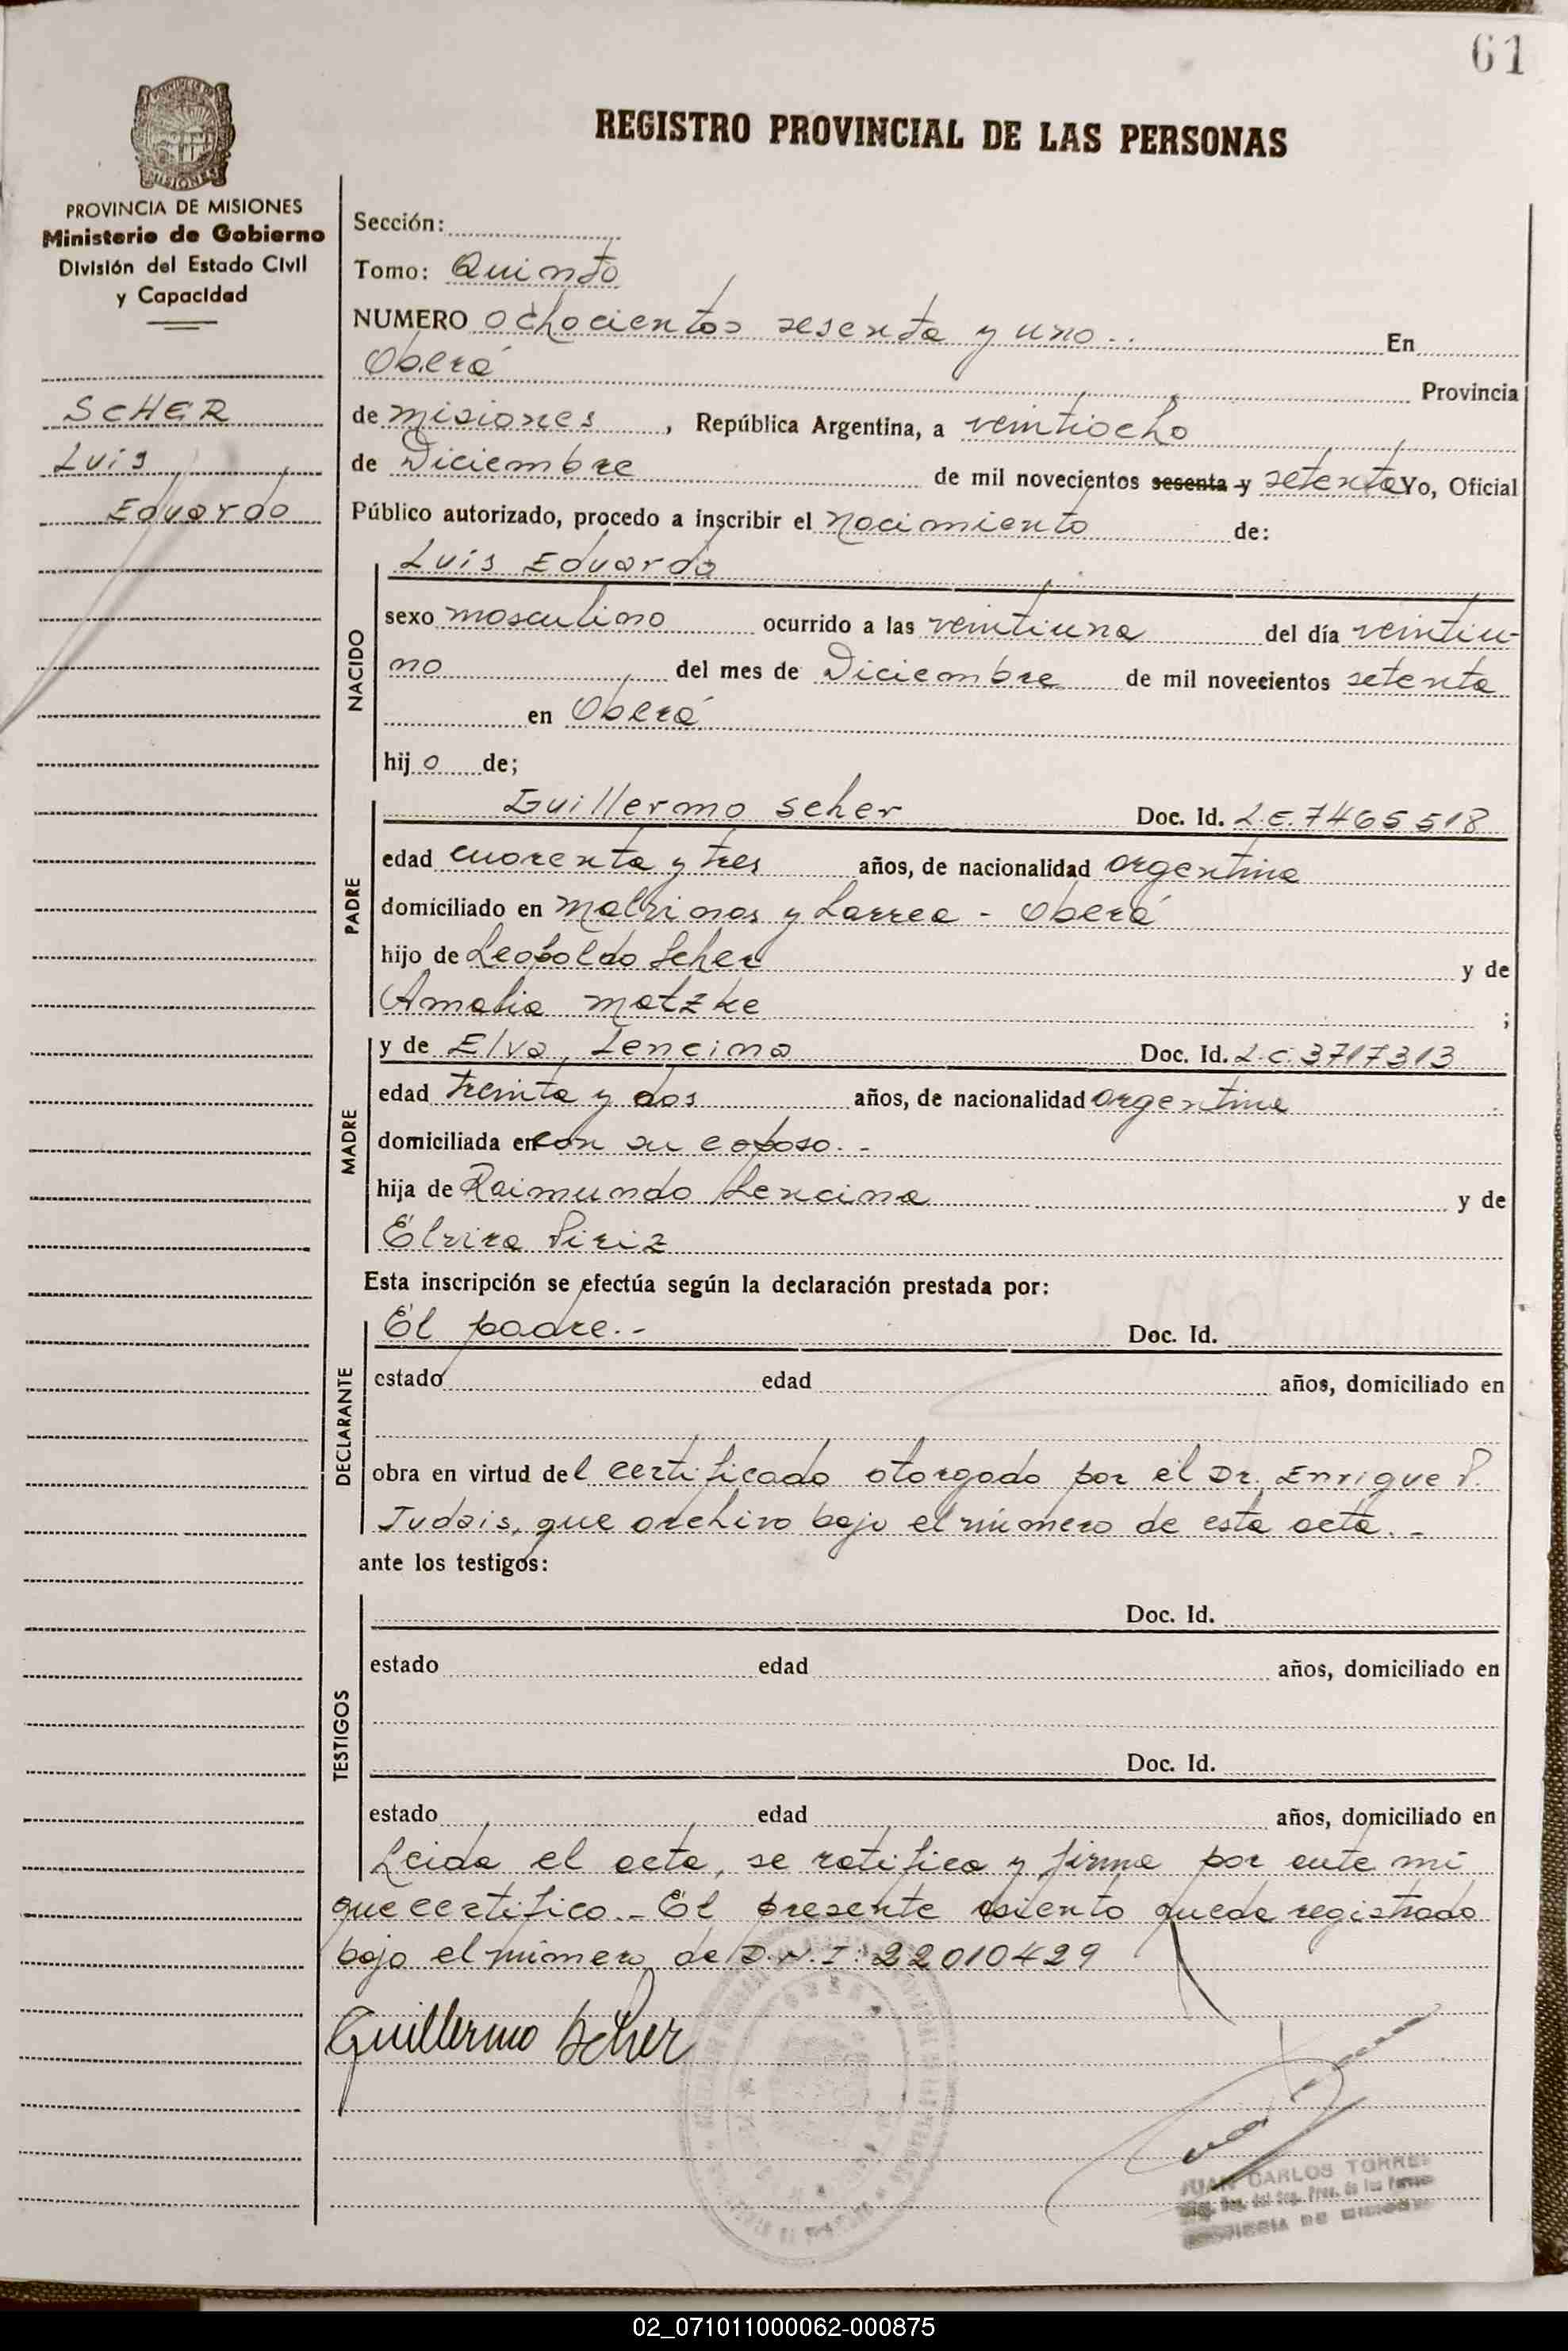 61
REGISTRO PROVINCIAL DE LAS PERSONAS
MISIONES
PROVINCIA DE MISIONES
Ministerio de Gobierno
División del Estado Civil
y Capacidad
SCHER
Luis
Eduardo
Sección:
Tomo: Quinto
NUMERO ochocientos sesenta y uno.. En
Oberá Provincia
de misiones, República Argentina, a veintiocho
de Diciembre de mil novecientos sesenta y setenta Yo, Oficial
Público autorizado, procedo a inscribir el nacimiento de:
NACIDO
Luis Eduardo
sexo masculino ocurrido a las veintiuna del día veintiu-
no del mes de Diciembre de mil novecientos setenta
en Oberá
hijo de;
PADRE
Guillermo Scher Doc. Id. L.E. 7465518
edad cuarenta y tres años, de nacionalidad argentina
domiciliado en Malvinas y Larrea - Oberá
hijo de Leopoldo Scher y de
Amalia Matzke ;
MADRE
y de Elva Lencina Doc. Id. L.C. 3717313
edad treinta y dos años, de nacionalidad argentina
domiciliada en con su esposo. -
hija de Raimundo Lencina y de
Elvira Piriz
Esta inscripción se efectúa según la declaración prestada por:
DECLARANTE
El padre.- Doc. Id.
estado edad años, domiciliado en
obra en virtud del certificado otorgado por el Dr. Enrique P.
Judais, que archivo bajo el número de esta acta. -
ante los testigos:
TESTIGOS
Doc. Id.
estado edad años, domiciliado en
Doc. Id.
estado edad años, domiciliado en
Leida el acta, se ratifica y firma por ante mi
que certifico.- El presente asiento queda registrado
bajo el número de D.N.I: 22010429
Guillermo Scher
JUAN CARLOS TORRES
02_071011000062-000875